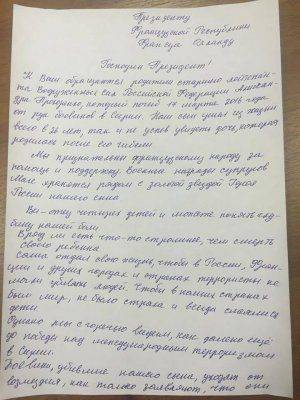 Президенту
Французской Республики
Франсуа Олланду
Господин Президент!
К Вам обращаются родители старшего лейтенан-
та Вооруженных сил Российской Федерации Алексан-
дра Прохоренко, который погиб 17 марта 2016 года
от рук боевиков в Сирии. Наш сын ушел из жизни
всего в 25 лет, так и не успев увидеть дочь, которая
родилась после его гибели
Мы признательны французскому народу за
помощь и поддержку. Военные награды супругов
Маге хранятся рядом с золотой звездой Героя
России нашего сына
Вы - отец четырех детей и можете понять глу-
бину нашей боли
Вряд ли есть что-то страшнее, чем смерть
своего ребенка
Саша отдал свою жизнь, чтобы в России, Фран-
ции и других городах и странах террористы не
могли убивать людей. Чтобы в наших странах
был мир, не было страха и всегда смеялись
дети
Однако мы с горечью видим, как далеко ещё
до победы над международным терроризмом
в Сирии.
Боевики, убившие нашего сына, уходят от
возмездия, как только заявляют, что они